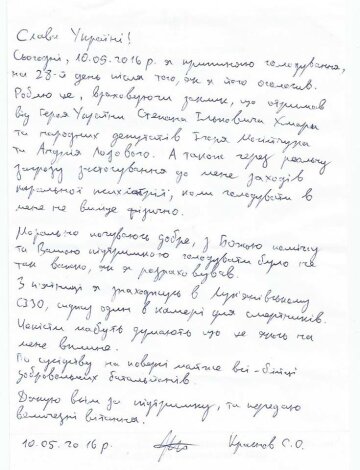 Слава Україні!
Сьогодні, 10.05.2016 р. я припиняю голодування,
на 28-й день після того, як я його оголосив.
Роблю це, враховуючи заклик, що отримав
від Героя України Степана Ільковича Хмари
та народних депутатів Ігоря Мосійчука
та Андрія Лозового. А також через реальну
загрозу застосування до мене заходів
каральної психіатрії, коли голодувати в
мене не вийде фізично.
Морально почуваюсь добре, з Божою поміччю
та Вашою підтримкою голодувати було не
так важко, як я розраховував.
З п'ятниці я знаходжусь в Лук'янівському
СІЗО, сиджу один в камері для смертників.
Чекісти мабуть думають що це якось на
мене вплине.
По сусідству на поверсі майже всі - бійці
добровольчих батальйонів.
Дякую всім за підтримку, та передаю
величезні вітання.
10.05.2016 р. Краснов С.О.